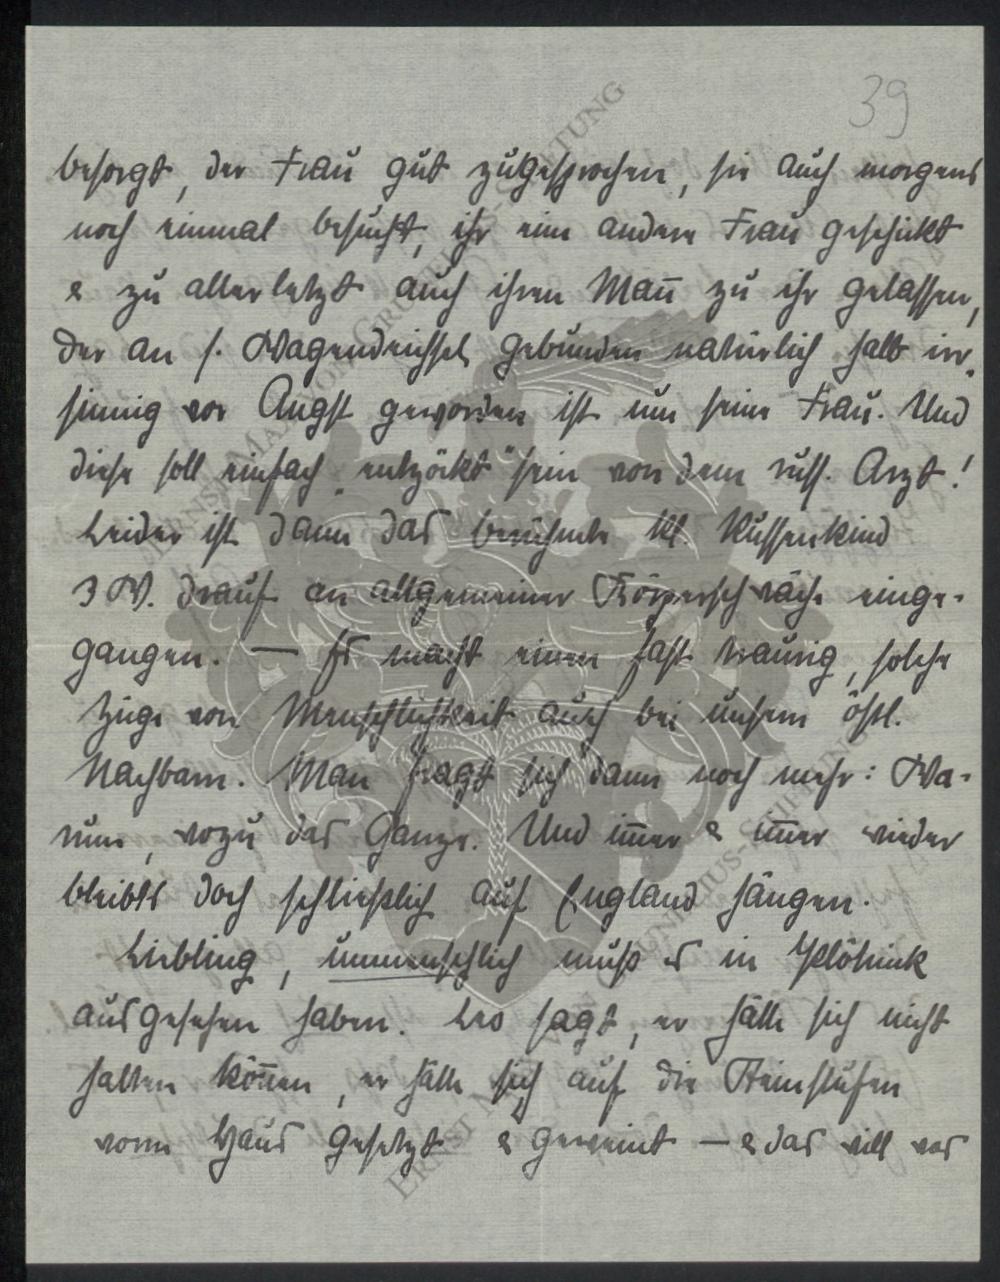 39
besorgt, der Frau gut zugesprochen, sie auch morgens
noch einmal besucht, ihr eine andere Frau geschickt
& zu allerletzt auch ihren Mañ zu ihr gelassen,
der an s. Wagendeichsel gebunden natürlich halb irr-
sinnig vor Angst geworden ist um seine Frau. Und
diese soll einfach „entzückt" sein von dem russ. Arzt!
Leider ist dann das berühmte kl. Russenkind
3 W. drauf an allgemeiner Körperschwäche einge-
gangen. — Es macht einen fast traurig, solche
Züge von Menschlichkeit auch bei unsern östl.
Nachbarn. Man fragt sich dann noch mehr: Wa-
rum, wozu das Ganze. Und im̄er & im̄er wieder
bleibts doch schließlich auf England hängen.
Liebling, unmenschlich muß es in
ausgesehen haben. Leo sagt, er hätte sich nicht
halten kön̄en, er hätte sich auf die Steinstufen
vorm Haus gesetzt & geweint — & das will was
ERNST MAX VON GRUNELIUS-STIFTUNG
ERNST MAX VON GRUNELIUS-STIFTUNG